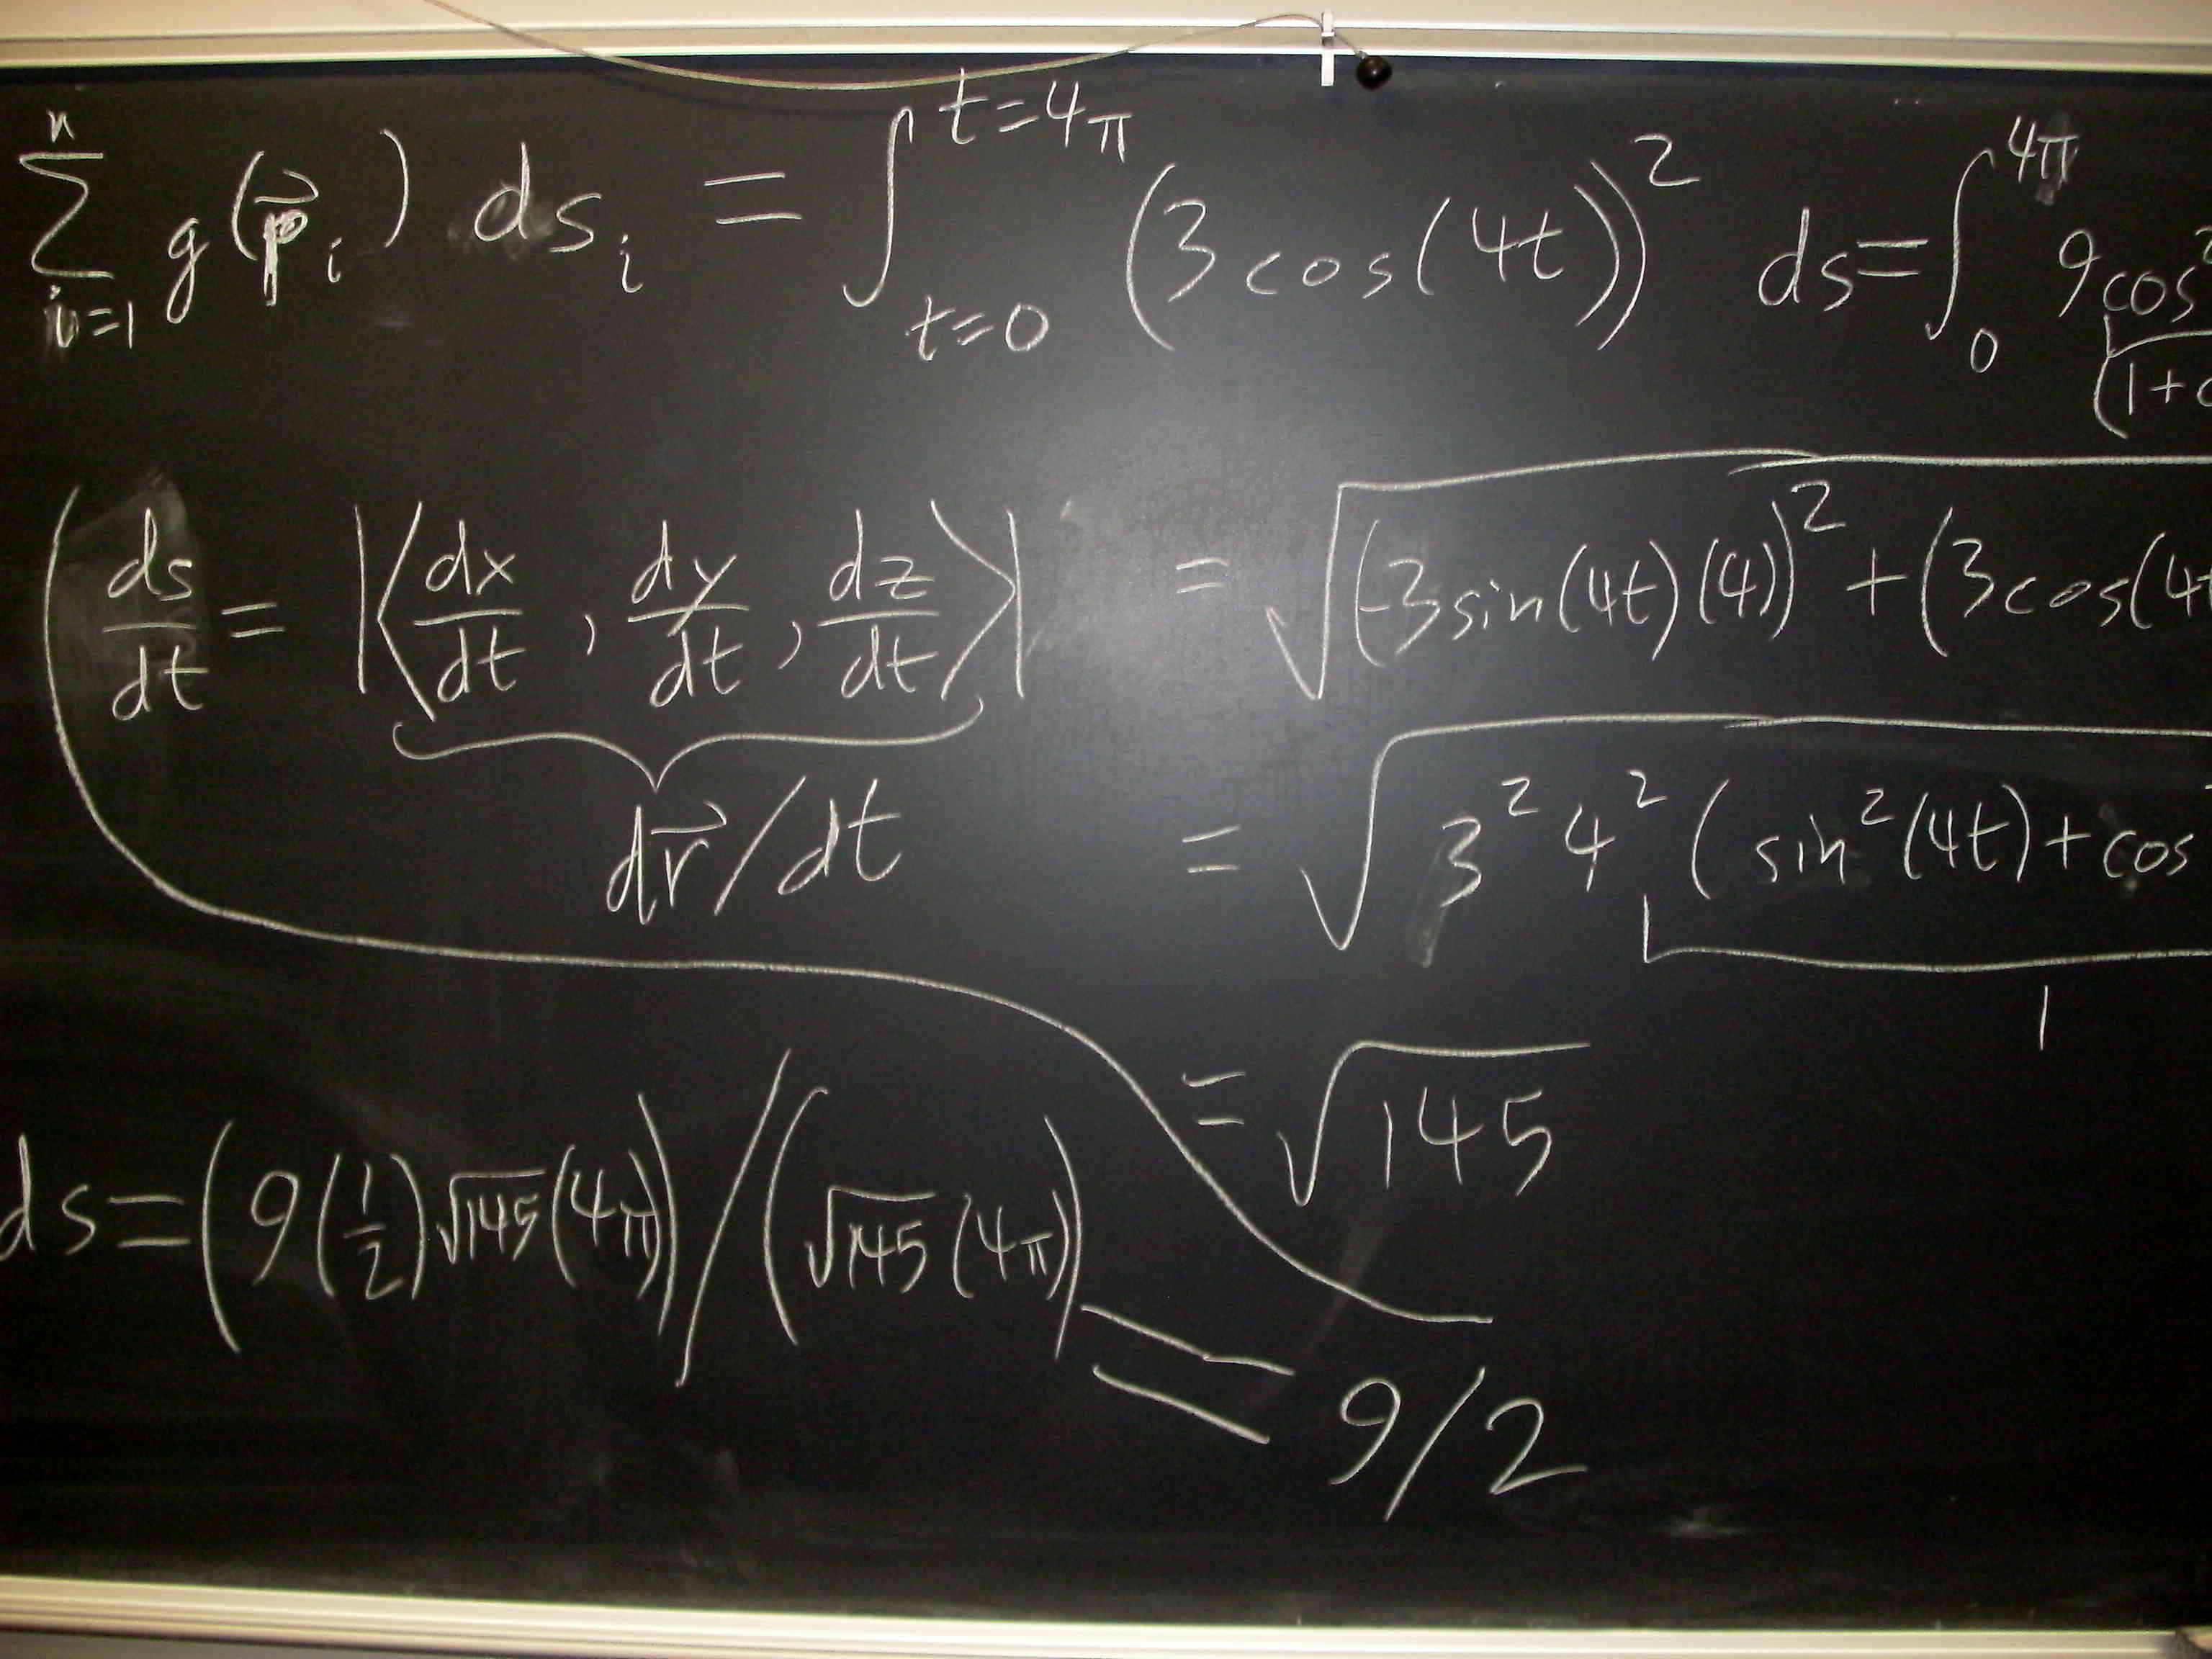 n
∑ g(p⃗ᵢ) dsᵢ = ∫ t=4π t=0 (3cos(4t))² ds = ∫ 4π 0 9cos²
i=1
(1+c
(ds/dt = |⟨dx/dt, dy/dt, dz/dt⟩| = √(-3sin(4t)(4))² + (3cos(4t
dr⃗/dt = √3²4²(sin²(4t)+cos
1
= √145
ds = (9(1/2)√145(4π))/(√145(4π))
= 9/2